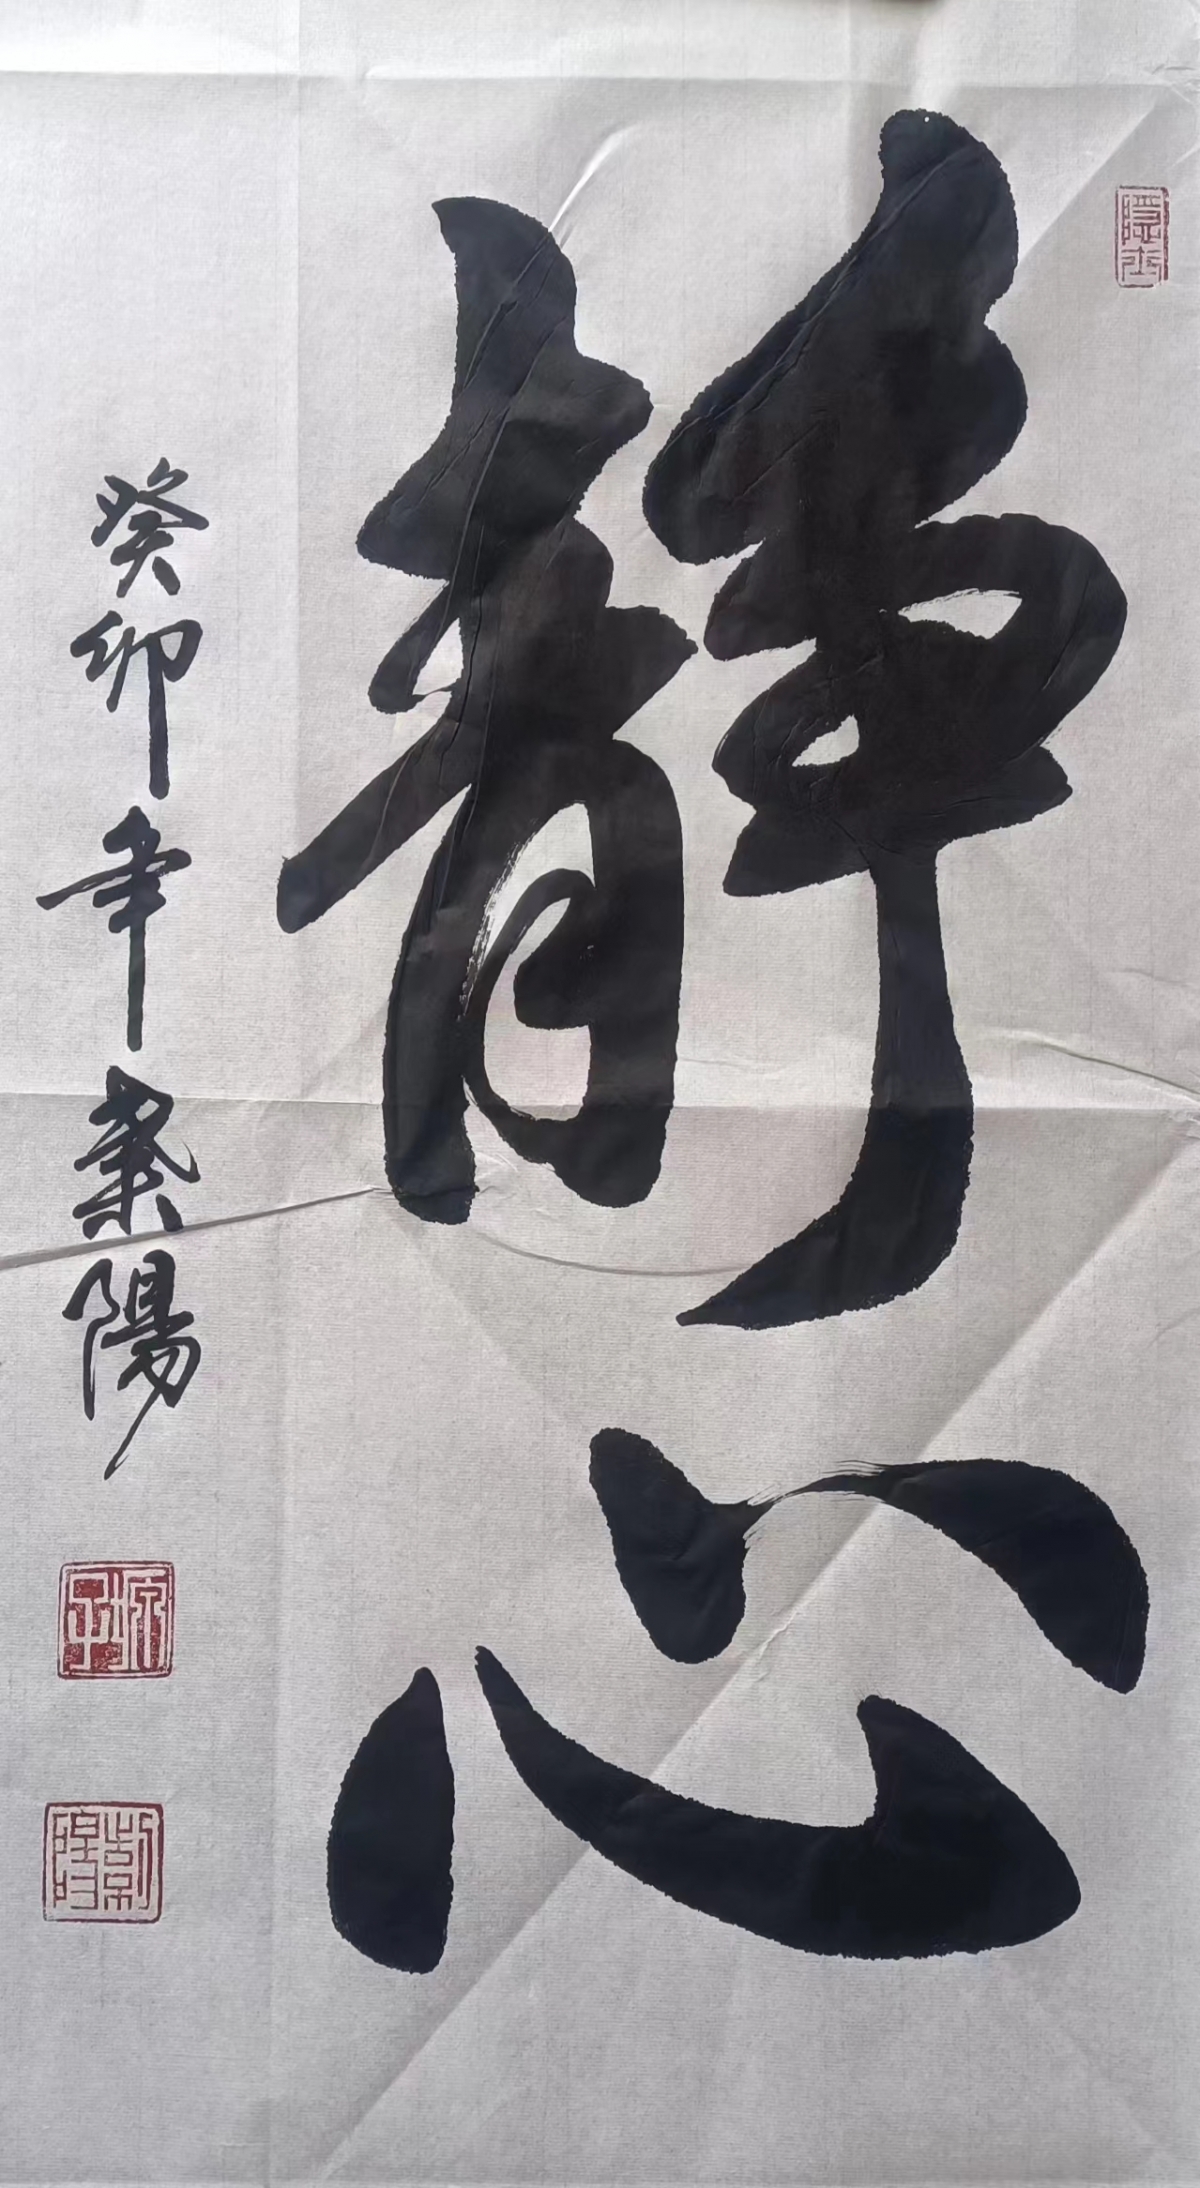 靜心
癸卯年業陽